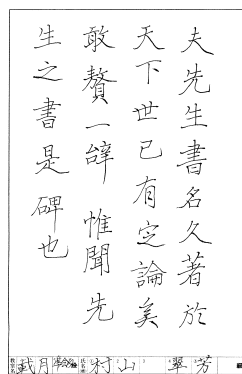 夫先生書名久著於
天下世已有定論矣
敢贅一辞惟聞先
生之書是碑也
教室名
武月
氏名
村山
翠芳